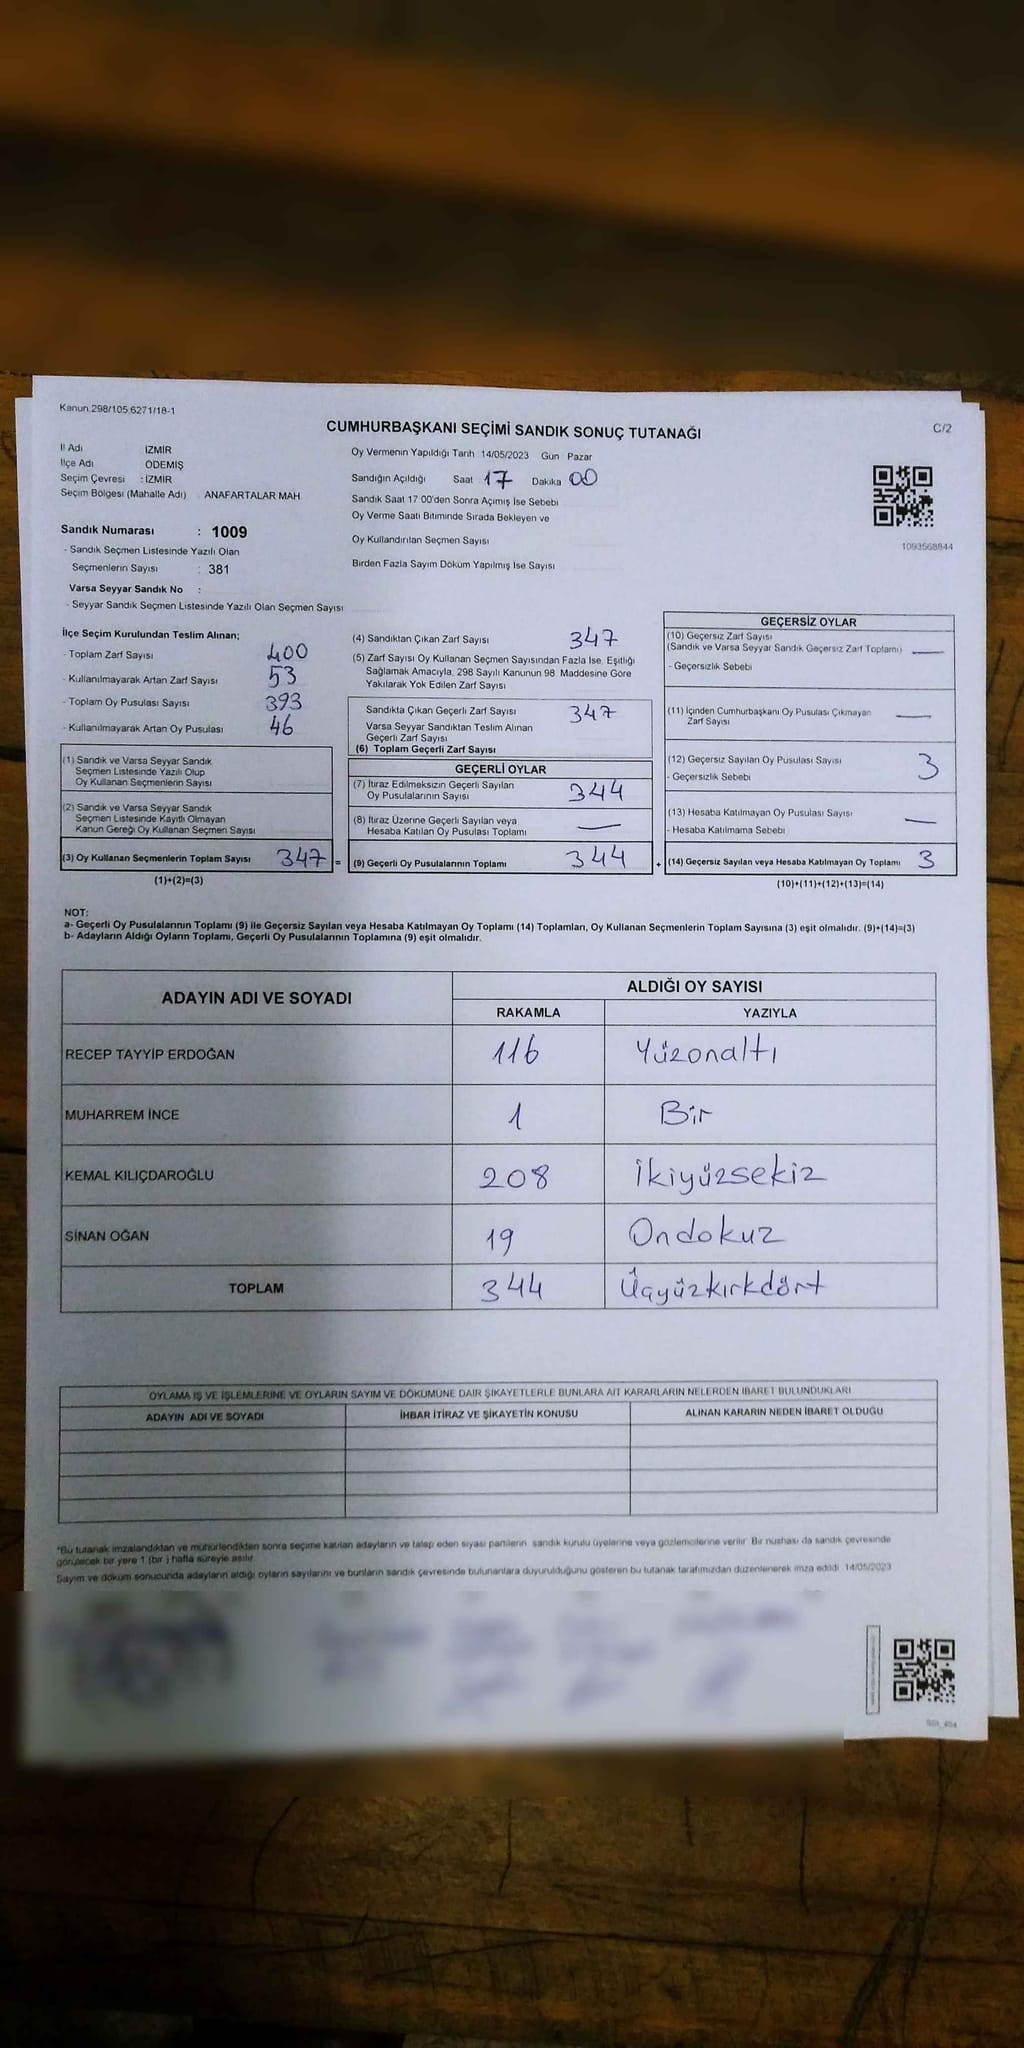 Kanun 298/105,6271/18-1
CUMHURBAŞKANI SEÇİMİ SANDIK SONUÇ TUTANAĞI
C/2
İl Adı İZMİR
İlçe Adı ÖDEMİŞ
Seçim Çevresi : İZMİR
Seçim Bölgesi (Mahalle Adı) ANAFARTALAR MAH.
Oy Vermenin Yapıldığı Tarih 14/05/2023 Gün Pazar
Sandığın Açıldığı Saat 17 Dakika 00
Sandık Saat 17 00'den Sonra Açımış İse Sebebi
Oy Verme Saati Bitiminde Sırada Bekleyen ve
Oy Kullandırılan Seçmen Sayısı
Birden Fazla Sayım Döküm Yapılmış İse Sayısı
1093568844
Sandık Numarası : 1009
- Sandık Seçmen Listesinde Yazılı Olan
Seçmenlerin Sayısı : 381
Varsa Seyyar Sandık No :
- Seyyar Sandık Seçmen Listesinde Yazılı Olan Seçmen Sayısı
İlçe Seçim Kurulundan Teslim Alınan;
- Toplam Zarf Sayısı 400
- Kullanılmayarak Artan Zarf Sayısı 53
- Toplam Oy Pusulası Sayısı 393
- Kullanılmayarak Artan Oy Pusulası 46
(1) Sandık ve Varsa Seyyar Sandık
Seçmen Listesinde Yazılı Olup
Oy Kullanan Seçmenlerin Sayısı
(2) Sandık ve Varsa Seyyar Sandık
Seçmen Listesinde Kayıtlı Olmayan
Kanun Gereği Oy Kullanan Seçmen Sayısı
(3) Oy Kullanan Seçmenlerin Toplam Sayısı 347 =
(1)+(2)=(3)
(4) Sandıktan Çıkan Zarf Sayısı 347
(5) Zarf Sayısı Oy Kullanan Seçmen Sayısından Fazla İse, Eşitliği
Sağlamak Amacıyla, 298 Sayılı Kanunun 98. Maddesine Göre
Yakılarak Yok Edilen Zarf Sayısı
Sandıkta Çıkan Geçerli Zarf Sayısı 347
Varsa Seyyar Sandıktan Teslim Alınan
Geçerli Zarf Sayısı
(6) Toplam Geçerli Zarf Sayısı
GEÇERLİ OYLAR
(7) İtiraz Edilmeksizin Geçerli Sayılan
Oy Pusulalarının Sayısı 344
(8) İtiraz Üzerine Geçerli Sayılan veya
Hesaba Katılan Oy Pusulası Toplamı —
(9) Geçerli Oy Pusulalarının Toplamı 344 +
GEÇERSİZ OYLAR
(10) Geçersiz Zarf Sayısı
(Sandık ve Varsa Seyyar Sandık Geçersiz Zarf Toplamı) —
- Geçersizlik Sebebi
(11) İçinden Cumhurbaşkanı Oy Pusulası Çıkmayan
Zarf Sayısı —
(12) Geçersiz Sayılan Oy Pusulası Sayısı 3
- Geçersizlik Sebebi
(13) Hesaba Katılmayan Oy Pusulası Sayısı —
- Hesaba Katılmama Sebebi
(14) Geçersiz Sayılan veya Hesaba Katılmayan Oy Toplamı 3
(10)+(11)+(12)+(13)=(14)
NOT:
a- Geçerli Oy Pusulalarının Toplamı (9) ile Geçersiz Sayılan veya Hesaba Katılmayan Oy Toplamı (14) Toplamları, Oy Kullanan Seçmenlerin Toplam Sayısına (3) eşit olmalıdır. (9)+(14)=(3)
b- Adayların Aldığı Oyların Toplamı, Geçerli Oy Pusulalarının Toplamına (9) eşit olmalıdır.
ADAYIN ADI VE SOYADI ALDIĞI OY SAYISI
RAKAMLA YAZIYLA
RECEP TAYYİP ERDOĞAN 116 Yüzonaltı
MUHARREM İNCE 1 Bir
KEMAL KILIÇDAROĞLU 208 İkiyüzsekiz
SİNAN OĞAN 19 Ondokuz
TOPLAM 344 Üçyüzkırkdört
OYLAMA İŞ VE İŞLEMLERİNE VE OYLARIN SAYIM VE DÖKÜMÜNE DAİR ŞİKAYETLERLE BUNLARA AİT KARARLARIN NELERDEN İBARET BULUNDUKLARI
ADAYIN ADI VE SOYADI İHBAR İTİRAZ VE ŞİKAYETİN KONUSU ALINAN KARARIN NEDEN İBARET OLDUĞU
*Bu tutanak imzalandıktan ve mühürlendikten sonra seçime katılan adayların ve talep eden siyasi partilerin sandık kurulu üyelerine veya gözlemcilerine verilir. Bir nüshası da sandık çevresinde
görülecek bir yere 1 (bir ) hafta süreyle asılır.
Sayım ve döküm sonucunda adayların aldığı oyların sayılarını ve bunların sandık çevresinde bulunanlara duyurulduğunu gösteren bu tutanak tarafımızdan düzenlenerek imza edildi 14/05/2023